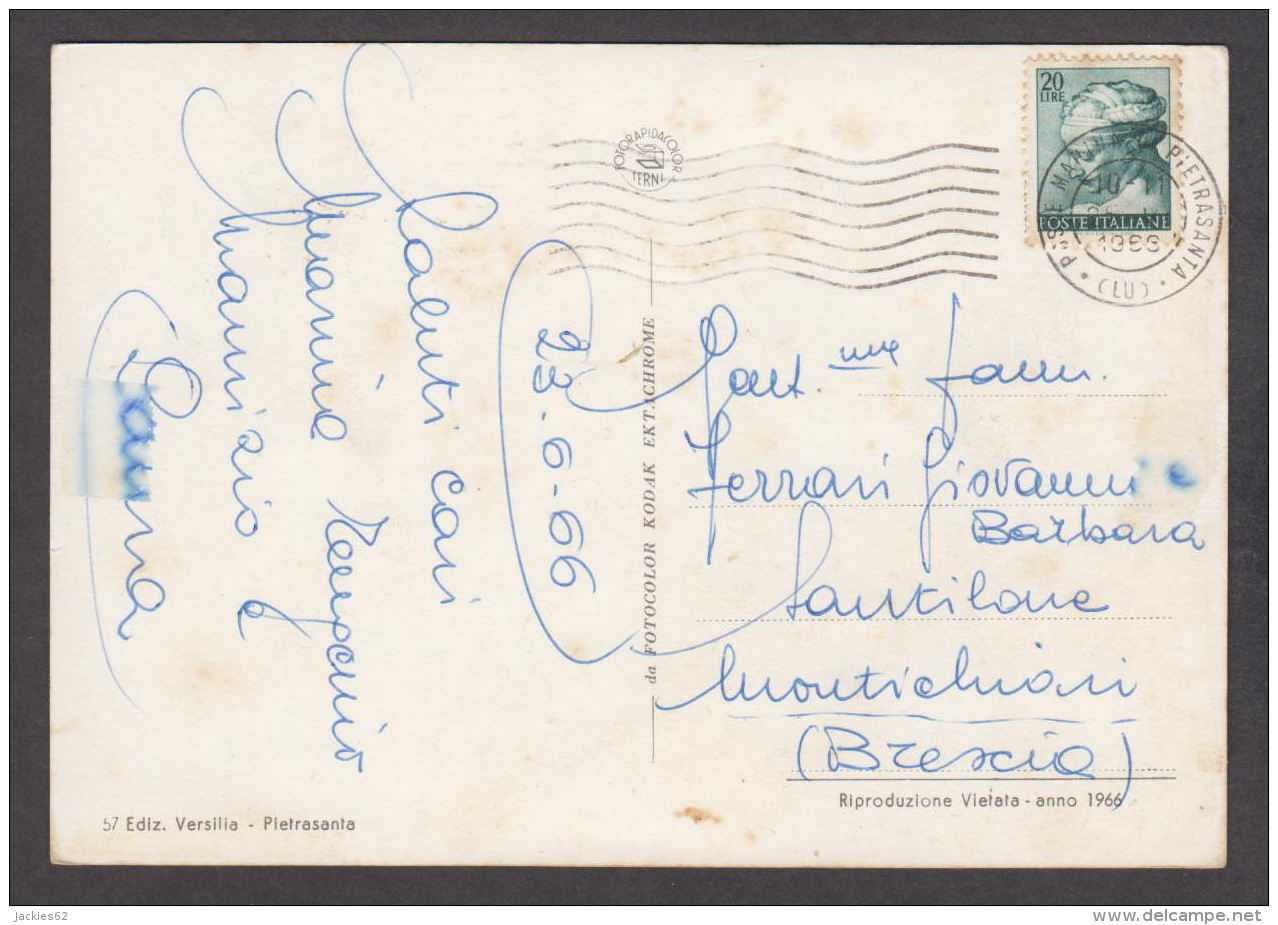 Saluti cari
Maurizio &
23-6-66
Gent.me Fam.
Ferrari Giovanni e
Barbara
Santilone
Montichiari
(Brescia)
20
LIRE
POSTE ITALIANE
PIETRASANTA
(LU)
10-11
FOTORAPIDACOLOR
TERNI
da FOTOCOLOR KODAK EKTACHROME
57 Ediz. Versilia - Pietrasanta
Riproduzione Vietata - anno 1966
jackies62
www.delcampe.net